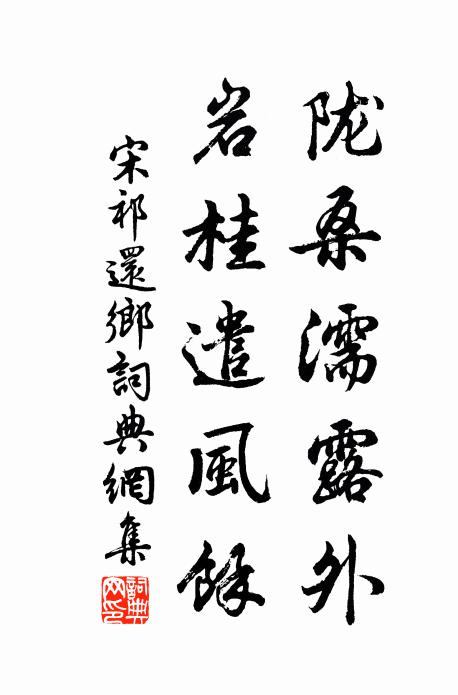 陇桑濡露外
岩桂遣風餘
宋祁還鄉詞典網集
詞典网印